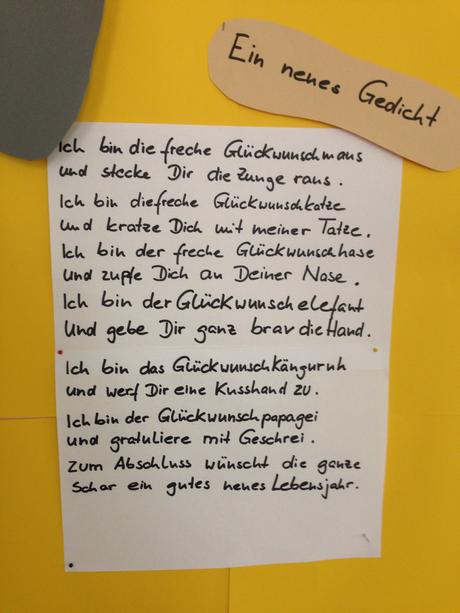 Ein neues Gedicht
Ich bin die freche Glückwunschmaus
und stecke Dir die Zunge raus.
Ich bin diefreche Glückwunschkatze
und kratze Dich mit meiner Tatze.
Ich bin der freche Glückwunschhase
und zupfe Dich an Deiner Nase.
Ich bin der Glückwunschelefant
und gebe Dir ganz brav die Hand.
Ich bin das Glückwunschkänguruh
und werf Dir eine Kusshand zu.
Ich bin der Glückwunschpapagei
und gratuliere mit Geschrei.
Zum Abschluss wünscht die ganze
Schar ein gutes neues Lebensjahr.